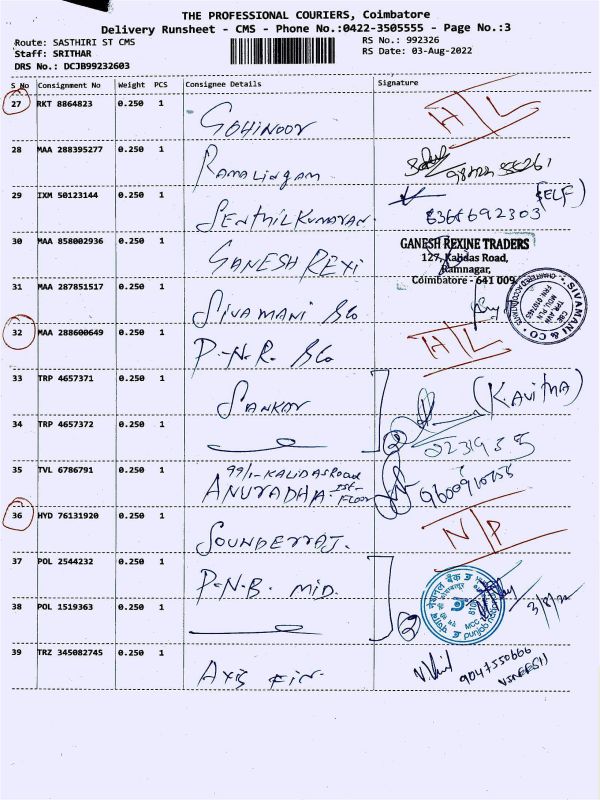 THE PROFESSIONAL COURIERS, Coimbatore
Delivery Runsheet - CMS - Phone No.:0422-3505555 - Page No.:3
Route: SASTHIRI ST CMS
RS No.: 992326
Staff: SRITHAR
RS Date: 03-Aug-2022
DRS No.: DCJB99232603
S No Consignment No Weight PCS Consignee Details Signature
27 RKT 8864823 0.250 1 GOHINOOR H/L
28 MAA 288395277 0.250 1 RAMALINGAM
29 IXM 50123144 0.250 1 SENTHILKUMARAN. (SELF)
30 MAA 858002936 0.250 1 GANESH REXI
GANESH REXINE TRADERS
127, Kalidas Road,
Ramnagar,
Coimbatore - 641 009
31 MAA 287851517 0.250 1 SIVAMANI &Co
SIVAMANI & CO
CHARTERED ACCOUNTANTS
32 MAA 288600649 0.250 1 P-N.R. &Co H/L
33 TRP 4657371 0.250 1 SANKAR (KAVITHA)
34 TRP 4657372 0.250 1 2
35 TVL 6786791 0.250 1 99/1-KALIDAS Road
ANURADHA Ist- FLOOR
36 HYD 76131920 0.250 1 SOUNDERRAJ. N/P
37 POL 2544232 0.250 1 P-N-B. MID. 3/8/22
38 POL 1519363 0.250 1 2
39 TRZ 345082745 0.250 1 AXIS FIN-
9047550666